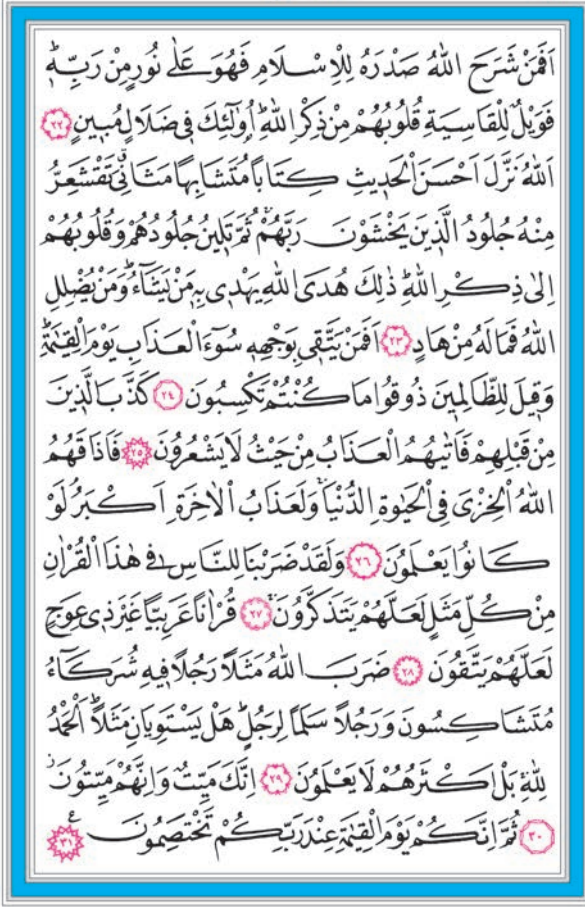 اَفَمَنْ شَرَحَ اللّٰهُ صَدْرَهُ لِلْاِسْلَامِ فَهُوَ عَلٰى نُورٍ مِنْ رَبِّهٖؕ
فَوَيْلٌ لِلْقَاسِيَةِ قُلُوبُهُمْ مِنْ ذِكْرِ اللّٰهِؕ اُو۬لٰٓئِكَ فٖى ضَلَالٍ مُبٖينٍ ﴿٢٢﴾
اَللّٰهُ نَزَّلَ اَحْسَنَ الْحَدٖيثِ كِتَابًا مُتَشَابِهًا مَثَانِىَۗ تَقْشَعِرُّ
مِنْهُ جُلُودُ الَّذٖينَ يَخْشَوْنَ رَبَّهُمْۚ ثُمَّ تَلٖينُ جُلُودُهُمْ وَقُلُوبُهُمْ
اِلٰى ذِكْرِ اللّٰهِؕ ذٰلِكَ هُدَى اللّٰهِ يَهْدٖى بِهٖ مَنْ يَشَٓاءُؕ وَمَنْ يُضْلِلِ
اللّٰهُ فَمَا لَهُ مِنْ هَادٍ ﴿٢٣﴾ اَفَمَنْ يَتَّقٖى بِوَجْهِهٖ سُٓوءَ الْعَذَابِ يَوْمَ الْقِيٰمَةِؕ
وَقٖيلَ لِلظَّالِمٖينَ ذُوقُوا مَا كُنْتُمْ تَكْسِبُونَ ﴿٢٤﴾ كَذَّبَ الَّذٖينَ
مِنْ قَبْلِهِمْ فَاَتٰيهُمُ الْعَذَابُ مِنْ حَيْثُ لَا يَشْعُرُونَ ﴿٢٥﴾ فَاَذَاقَهُمُ
اللّٰهُ الْخِزْىَ فِى الْحَيٰوةِ الدُّنْيَاۚ وَلَعَذَابُ الْاٰخِرَةِ اَكْبَرُۢ لَوْ
كَانُوا يَعْلَمُونَ ﴿٢٦﴾ وَلَقَدْ ضَرَبْنَا لِلنَّاسِ فٖى هٰذَا الْقُرْاٰنِ
مِنْ كُلِّ مَثَلٍ لَعَلَّهُمْ يَتَذَكَّرُونَۚ ﴿٢٧﴾ قُرْاٰنًا عَرَبِيًّا غَيْرَ ذٖى عِوَجٍ
لَعَلَّهُمْ يَتَّقُونَ ﴿٢٨﴾ ضَرَبَ اللّٰهُ مَثَلًا رَجُلًا فٖيهِ شُرَكَٓاءُ
مُتَشَاكِسُونَ وَرَجُلًا سَلَمًا لِرَجُلٍؕ هَلْ يَسْتَوِيَانِ مَثَلًاؕ اَلْحَمْدُ
لِلّٰهِۚ بَلْ اَكْثَرُهُمْ لَا يَعْلَمُونَ ﴿٢٩﴾ اِنَّكَ مَيِّتٌ وَاِنَّهُمْ مَيِّتُونَۘ
﴿٣٠﴾ ثُمَّ اِنَّكُمْ يَوْمَ الْقِيٰمَةِ عِنْدَ رَبِّكُمْ تَخْتَصِمُونَ ع ﴿٣١﴾